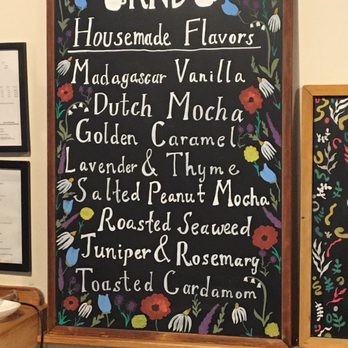 Housemade Flavors
Madagascar Vanilla
Dutch Mocha
Golden Caramel
Lavender & Thyme
Salted Peanut Mocha
Roasted Seaweed
Juniper & Rosemary
Toasted Cardamom